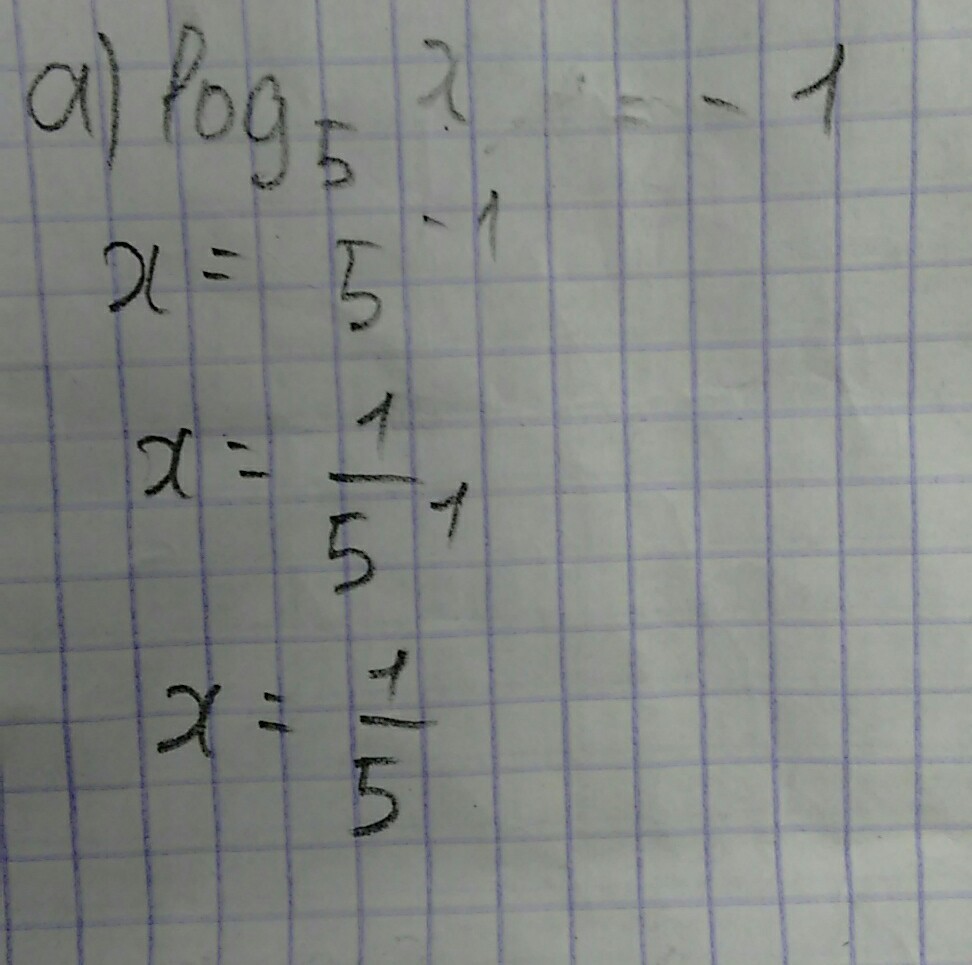 a) log₅ x = -1
x = 5⁻¹
x = 1/5¹
x = 1/5